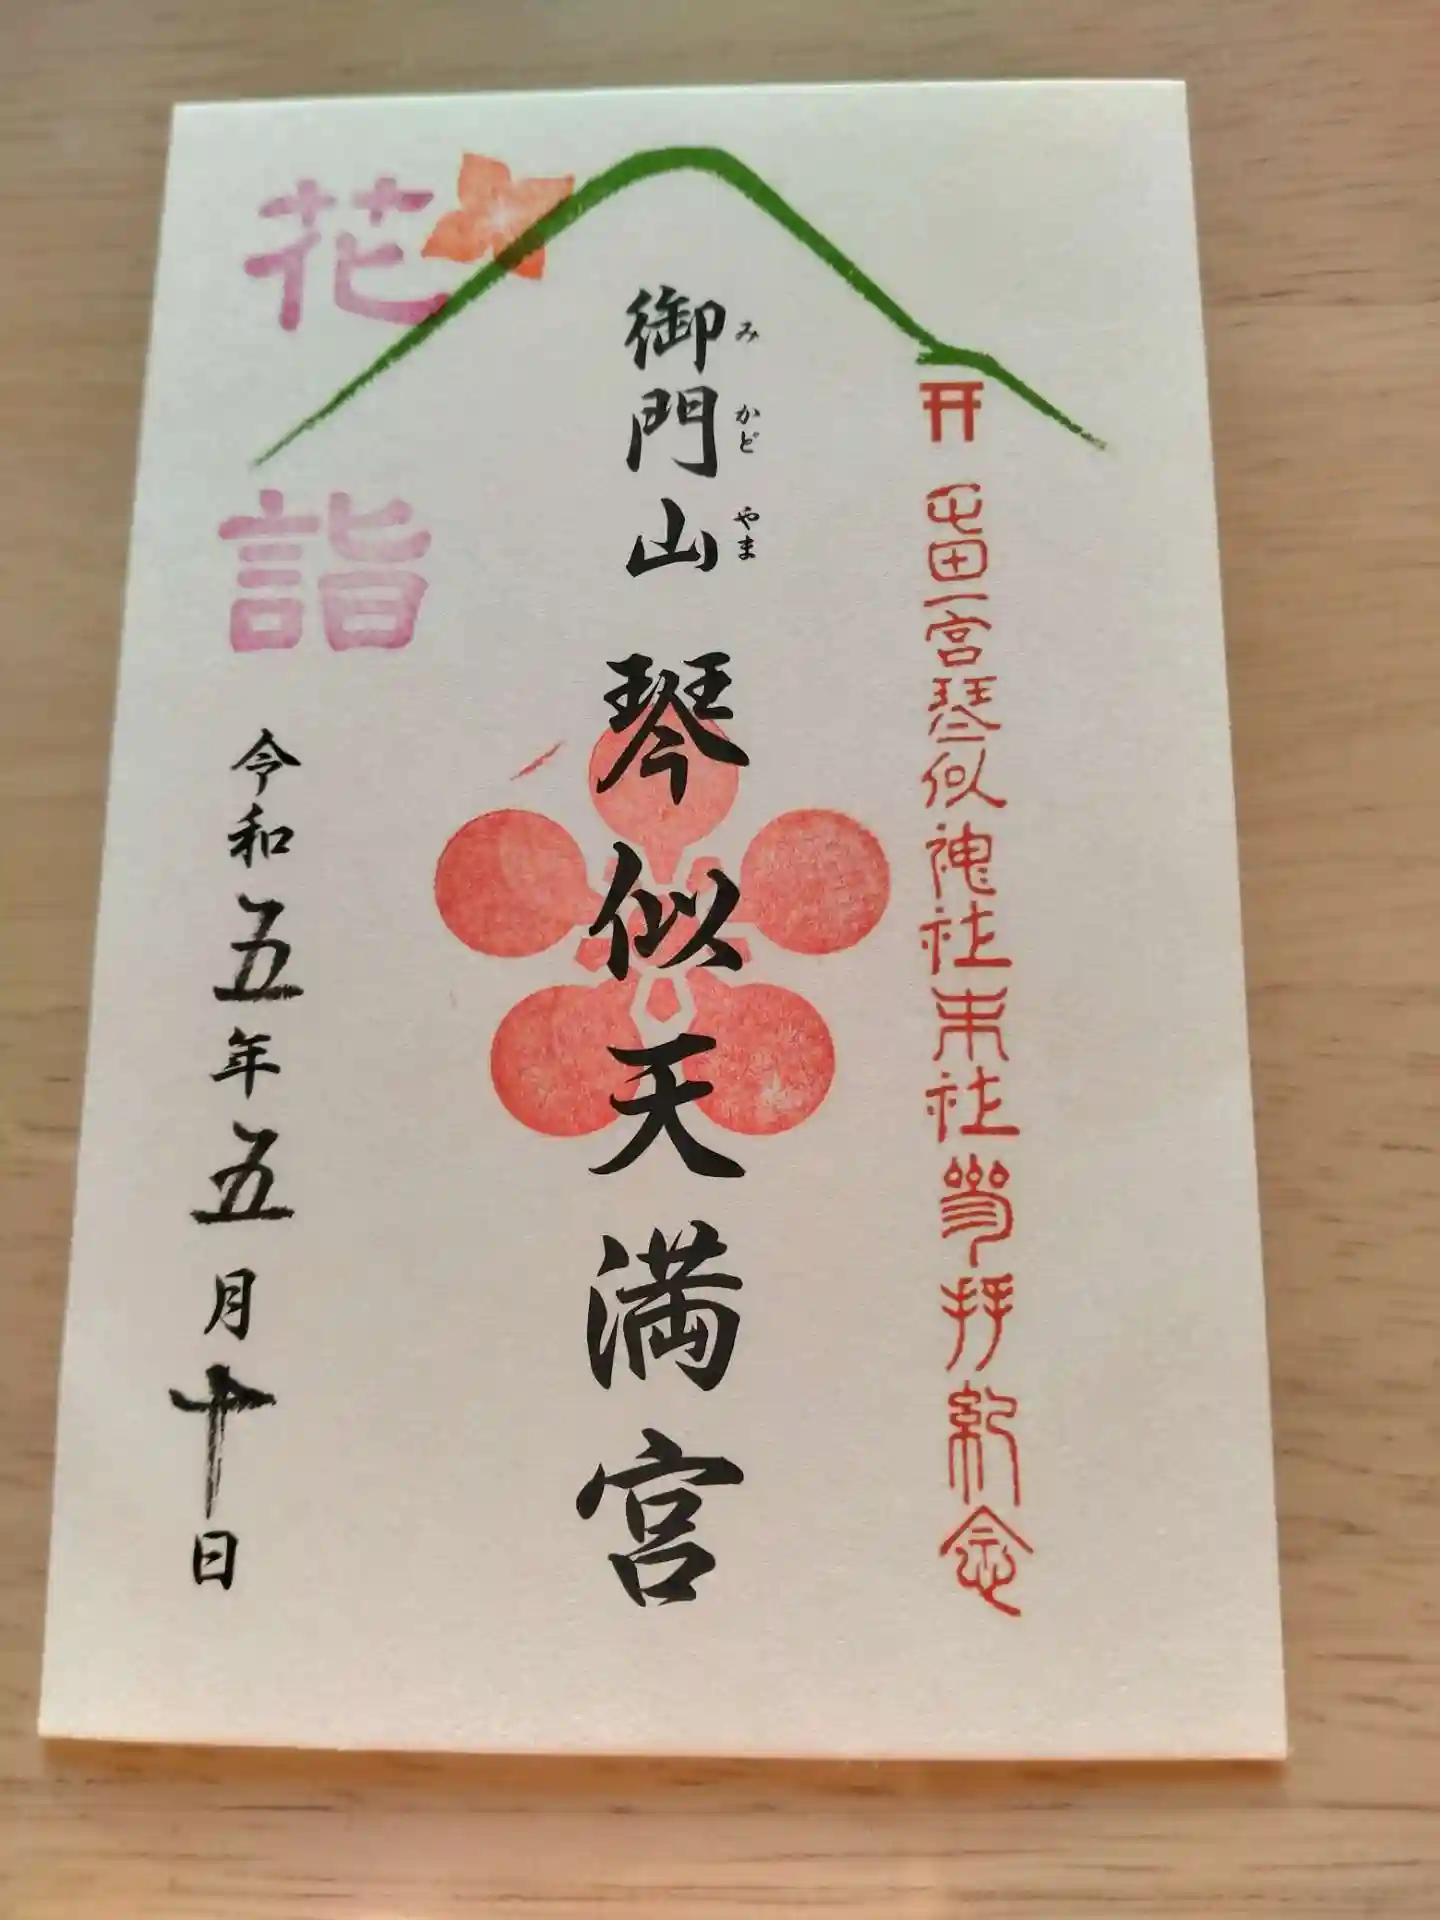 屯田一宮琴似神社末社参拝紀念
御門山琴似天満宮
みかどやま
花詣
令和五年五月十日